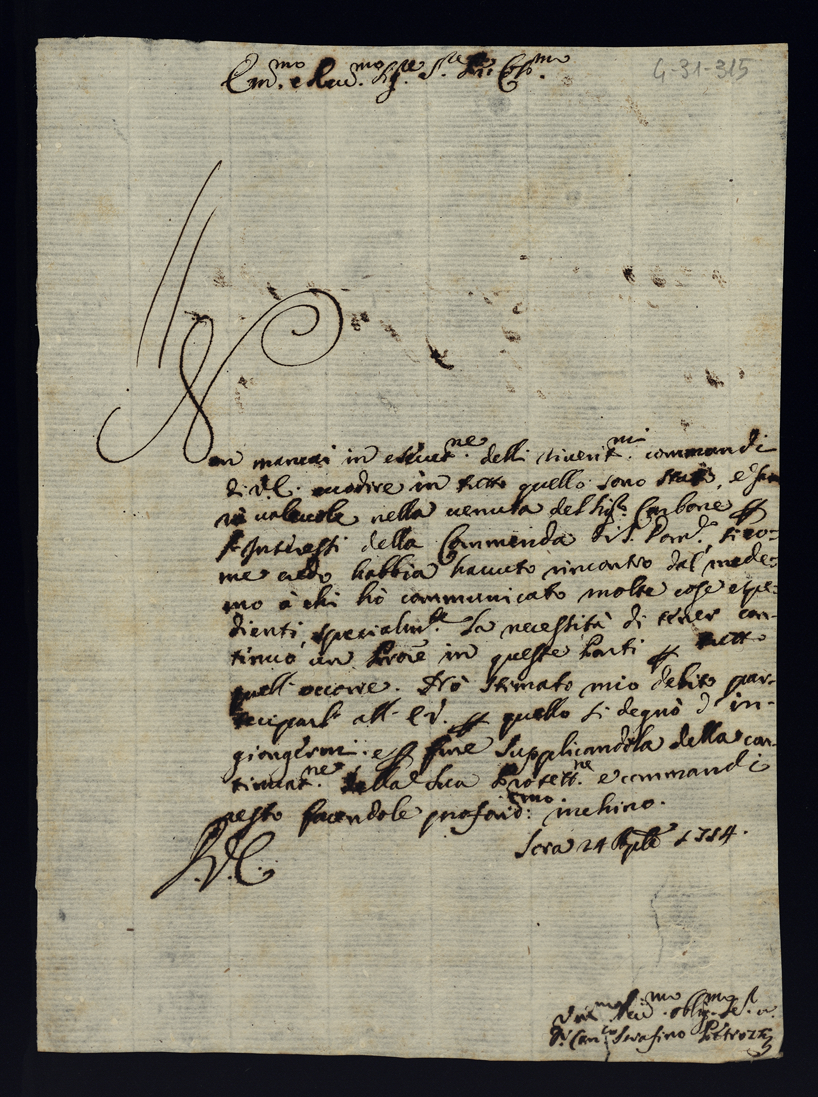 Em.mo e Rev.mo Sig.re S.re Pne Col.mo
G-31-315
Non mancai in esecut.ne delli riverit.mi commandi
di V.E. in tutto quello sono stato, e
valevole nella venuta del Sig.r Carbone p
Interessi della Commenda di S. si co-
me credo habbia havuto rincontro dal mede-
mo à chi hò communicato molte cose espe-
dienti, specialm.te la necessità di tener con-
tinuo un in queste Parti p tutto
quell' occorre. Hò stimato mio debito par-
teciparlo all' E.V. p quello si degnò d' in-
giongermi, e p fine supplicandola della con-
tinuat.ne della sua Protett.ne e commandi
resto facendole profond.mo inchino.
Sora 24 1714.
D.V.E.
Dev.mo oblig.mo Se.
Can.co Serafino